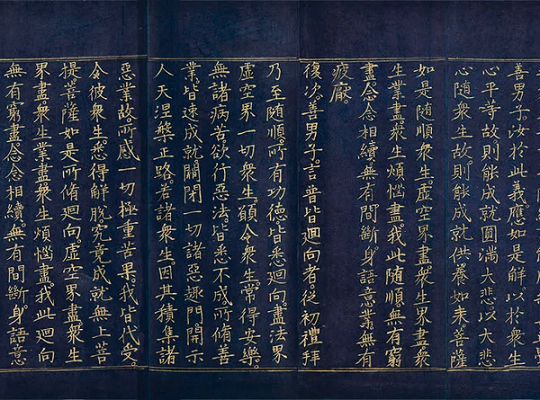 善男子。汝於此義應如是解。以於衆生
心平等故。則能成就圓滿大悲。以大悲
心隨衆生故。則能成就供養如來。菩薩
如是隨順衆生。虛空界盡。衆生界盡。衆
生業盡。衆生煩惱盡。我此隨順無有窮
盡。念念相續無有間斷。身語意業。無有
疲厭
復次善男子。言普皆迴向者。從初禮拜
乃至隨順。所有功德皆悉迴向盡法界
虛空界一切衆生。願令衆生。常得安樂。
無諸病苦。欲行惡法。皆悉不成。所修善
業。皆速成就。關閉一切諸惡趣門。開示
人天涅槃正路。若諸衆生。因其積集諸
惡業故。所感一切極重苦果。我皆代受。
令彼衆生。悉得解脫。究竟成就無上菩
提。菩薩如是所脩迴向。虛空界盡。衆生
界盡。衆生業盡。衆生煩惱盡。我此迴向
無有窮盡。念念相續。無有間斷。身語意